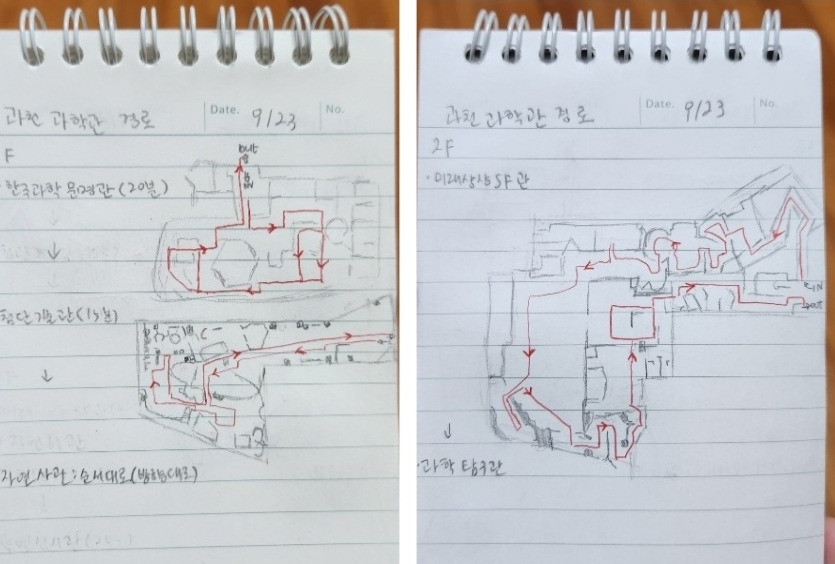 과천 과학관 경로
Date. 9/23 No.
F
한국과학문명관(20분)
out
IN
↓
첨단기술관(15분)
↓
자연사관: 순서대로(방향대로)
과천 과학관 경로
Date. 9/23 No.
2F
· 미래상상SF관
IN
out
↓
· 과학탐구관